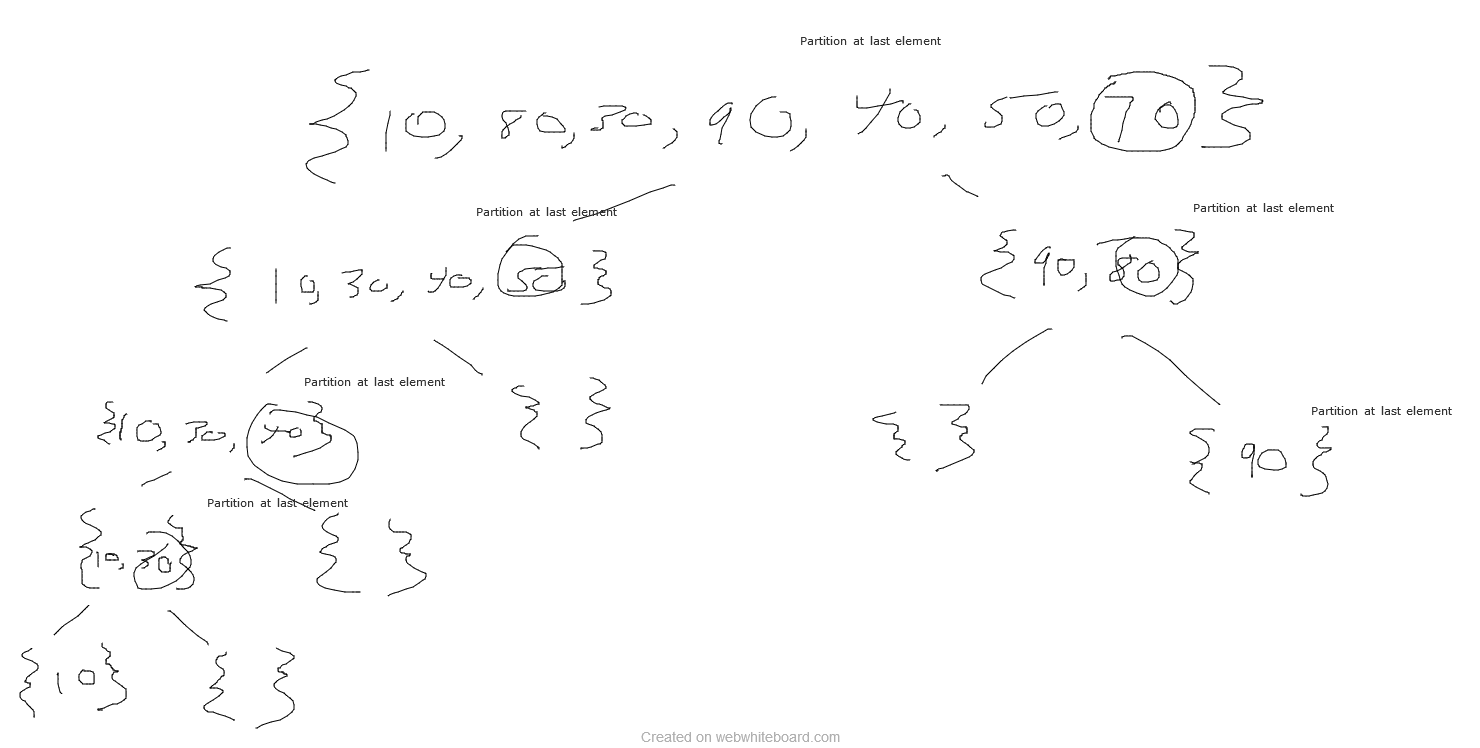 Partition at last element
{10, 80, 30, 90, 40, 50, 70}
Partition at last element
Partition at last element
{10, 30, 40, 50}
{90, 80}
Partition at last element
{10, 30, 40}
{ }
{ }
Partition at last element
{90}
Partition at last element
{10, 30}
{ }
{10}
{ }
Created on webwhiteboard.com